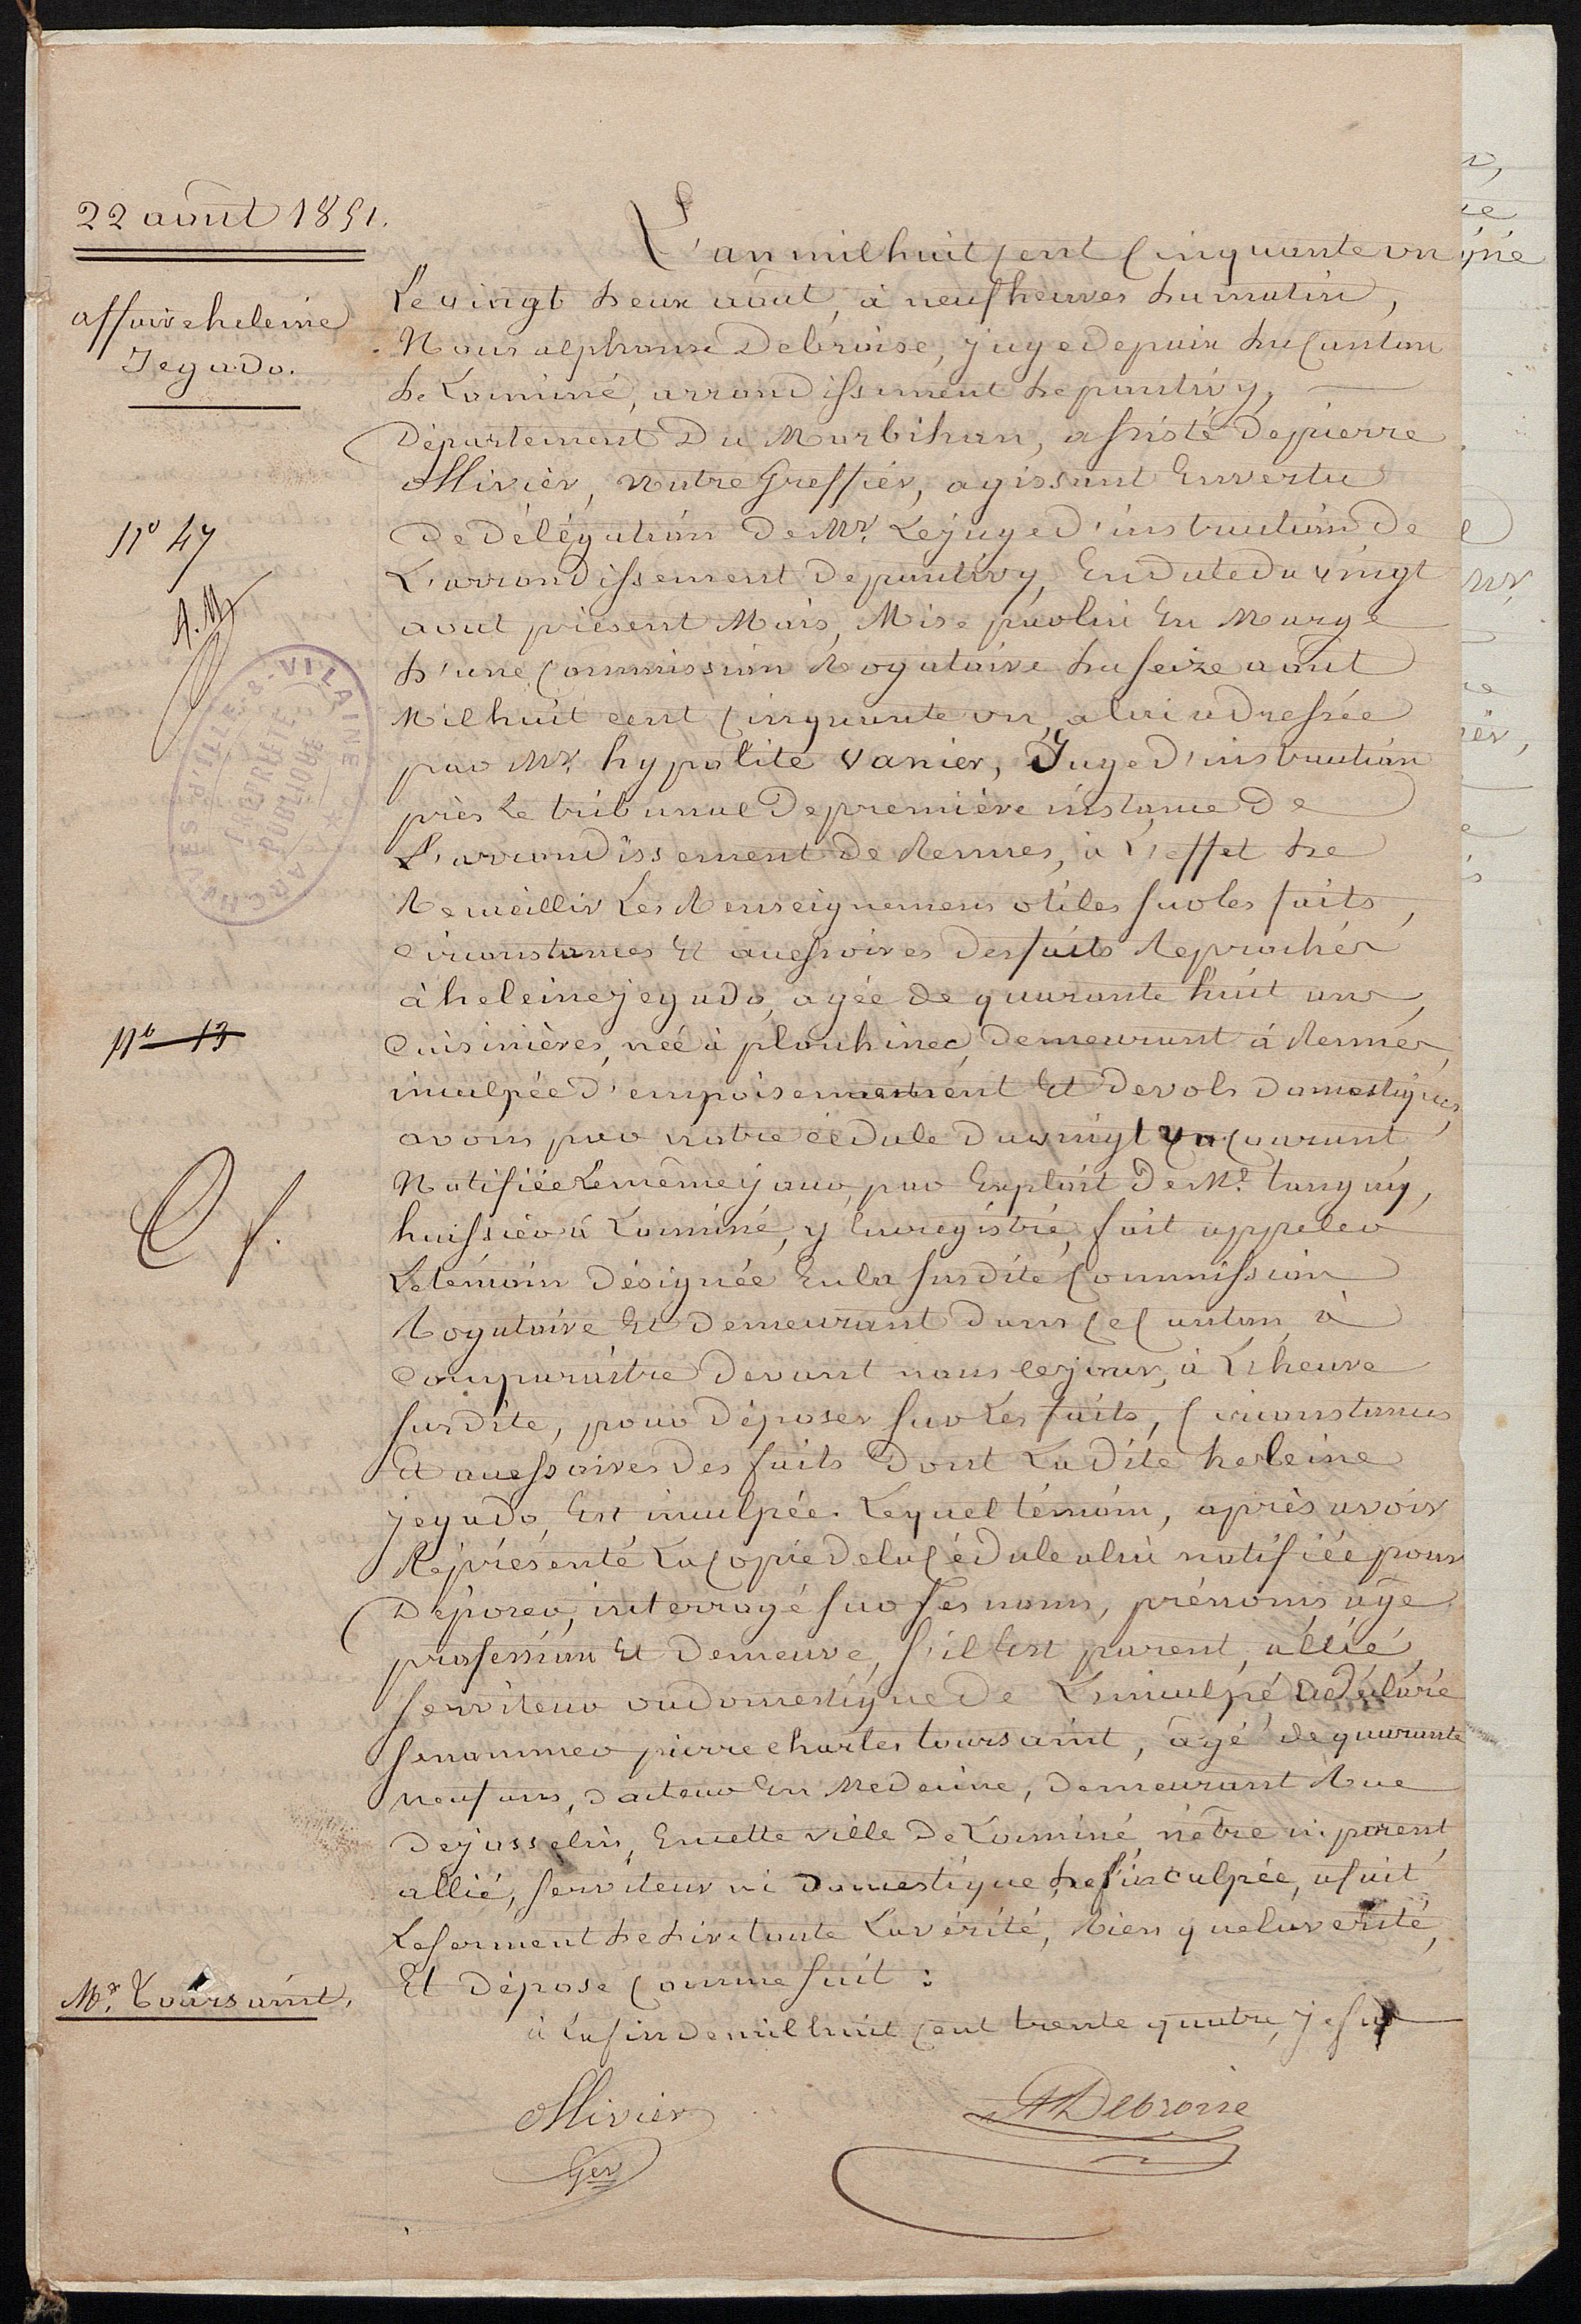 22 août 1851.
affaire heleine
Jegado.
N° 47
A.M
ARCHIVES D'ILLE-&-VILAINE
PROPRIÉTÉ
PUBLIQUE
N° 13
C f.
Mr. Toursaint.
L'an mil huit cent cinquante un
Le vingt deux août, à neuf heures du matin,
Nous alphonse Debroise, juge de paix du Canton
de Locminé, arrondissement de pontivy,
Département Du Morbihan, assisté de pierre
Ollivier, notre Greffier, agissant En vertu
De délégation De Mr. Le juge d'instruction De
L'arrondissement De pontivy, En date du vingt
aout présent Mois, Mise par lui En Marge
d'une Commission Rogatoire du seize août
Mil huit cent cinquante un, a lui adressée
par Mr. hypolite Vanier, Juge d'instruction
près Le tribunal De première instance De
L'arrondissement De Rennes, à L'effet de
Recueillir Les Renseignemens utiles sur les faits,
Circonstances Et accessoires Des faits Reprochés
à heleine jegado, agée De quarante huit ans,
Cuisinières, née à plouhinec, Demeurant à Rennes,
inculpée D'empoisennement Et De vols Domestiques,
avons par notre cédule Du vingt un Courant
Notifiée Le même jour, par Exploit De Me. tanguy,
huissier à Locminé, y Enregistré, fait appeler
Le témoin désignée En la susdite Commission
Rogatoire Et Demeurant Dans ce Canton, à
Comparaître Devant nous ce jour, à L'heure
susdite, pour Déposer sur Les faits, Circonstances
Et accessoires Des faits Dont La dite heleine
jegado, Est inculpée. Lequel témoin, après avoir
Représenté La Copie De la Cédule a lui notifiée pour
Déposer, interrogé sur ses noms, prénoms, age
profession Et Demeure, s'il Est parent, allié,
serviteur ou domestique De L'inculpé, a Déclaré
se nommer pierre charles toursaint, âgé de quarante
neuf ans, docteur En Médecine, Demeurant Rue
De josselin, En cette ville De Locminé, n'être ni parent,
allié, serviteur ni Domestique de l'inculpée, a fait
Le serment de dire toute La vérité, Rien que la vérité,
Et Dépose Comme suit :
à La fin de mil huit cent trente quatre, je fus
Ollivier
Ger
ADebroise